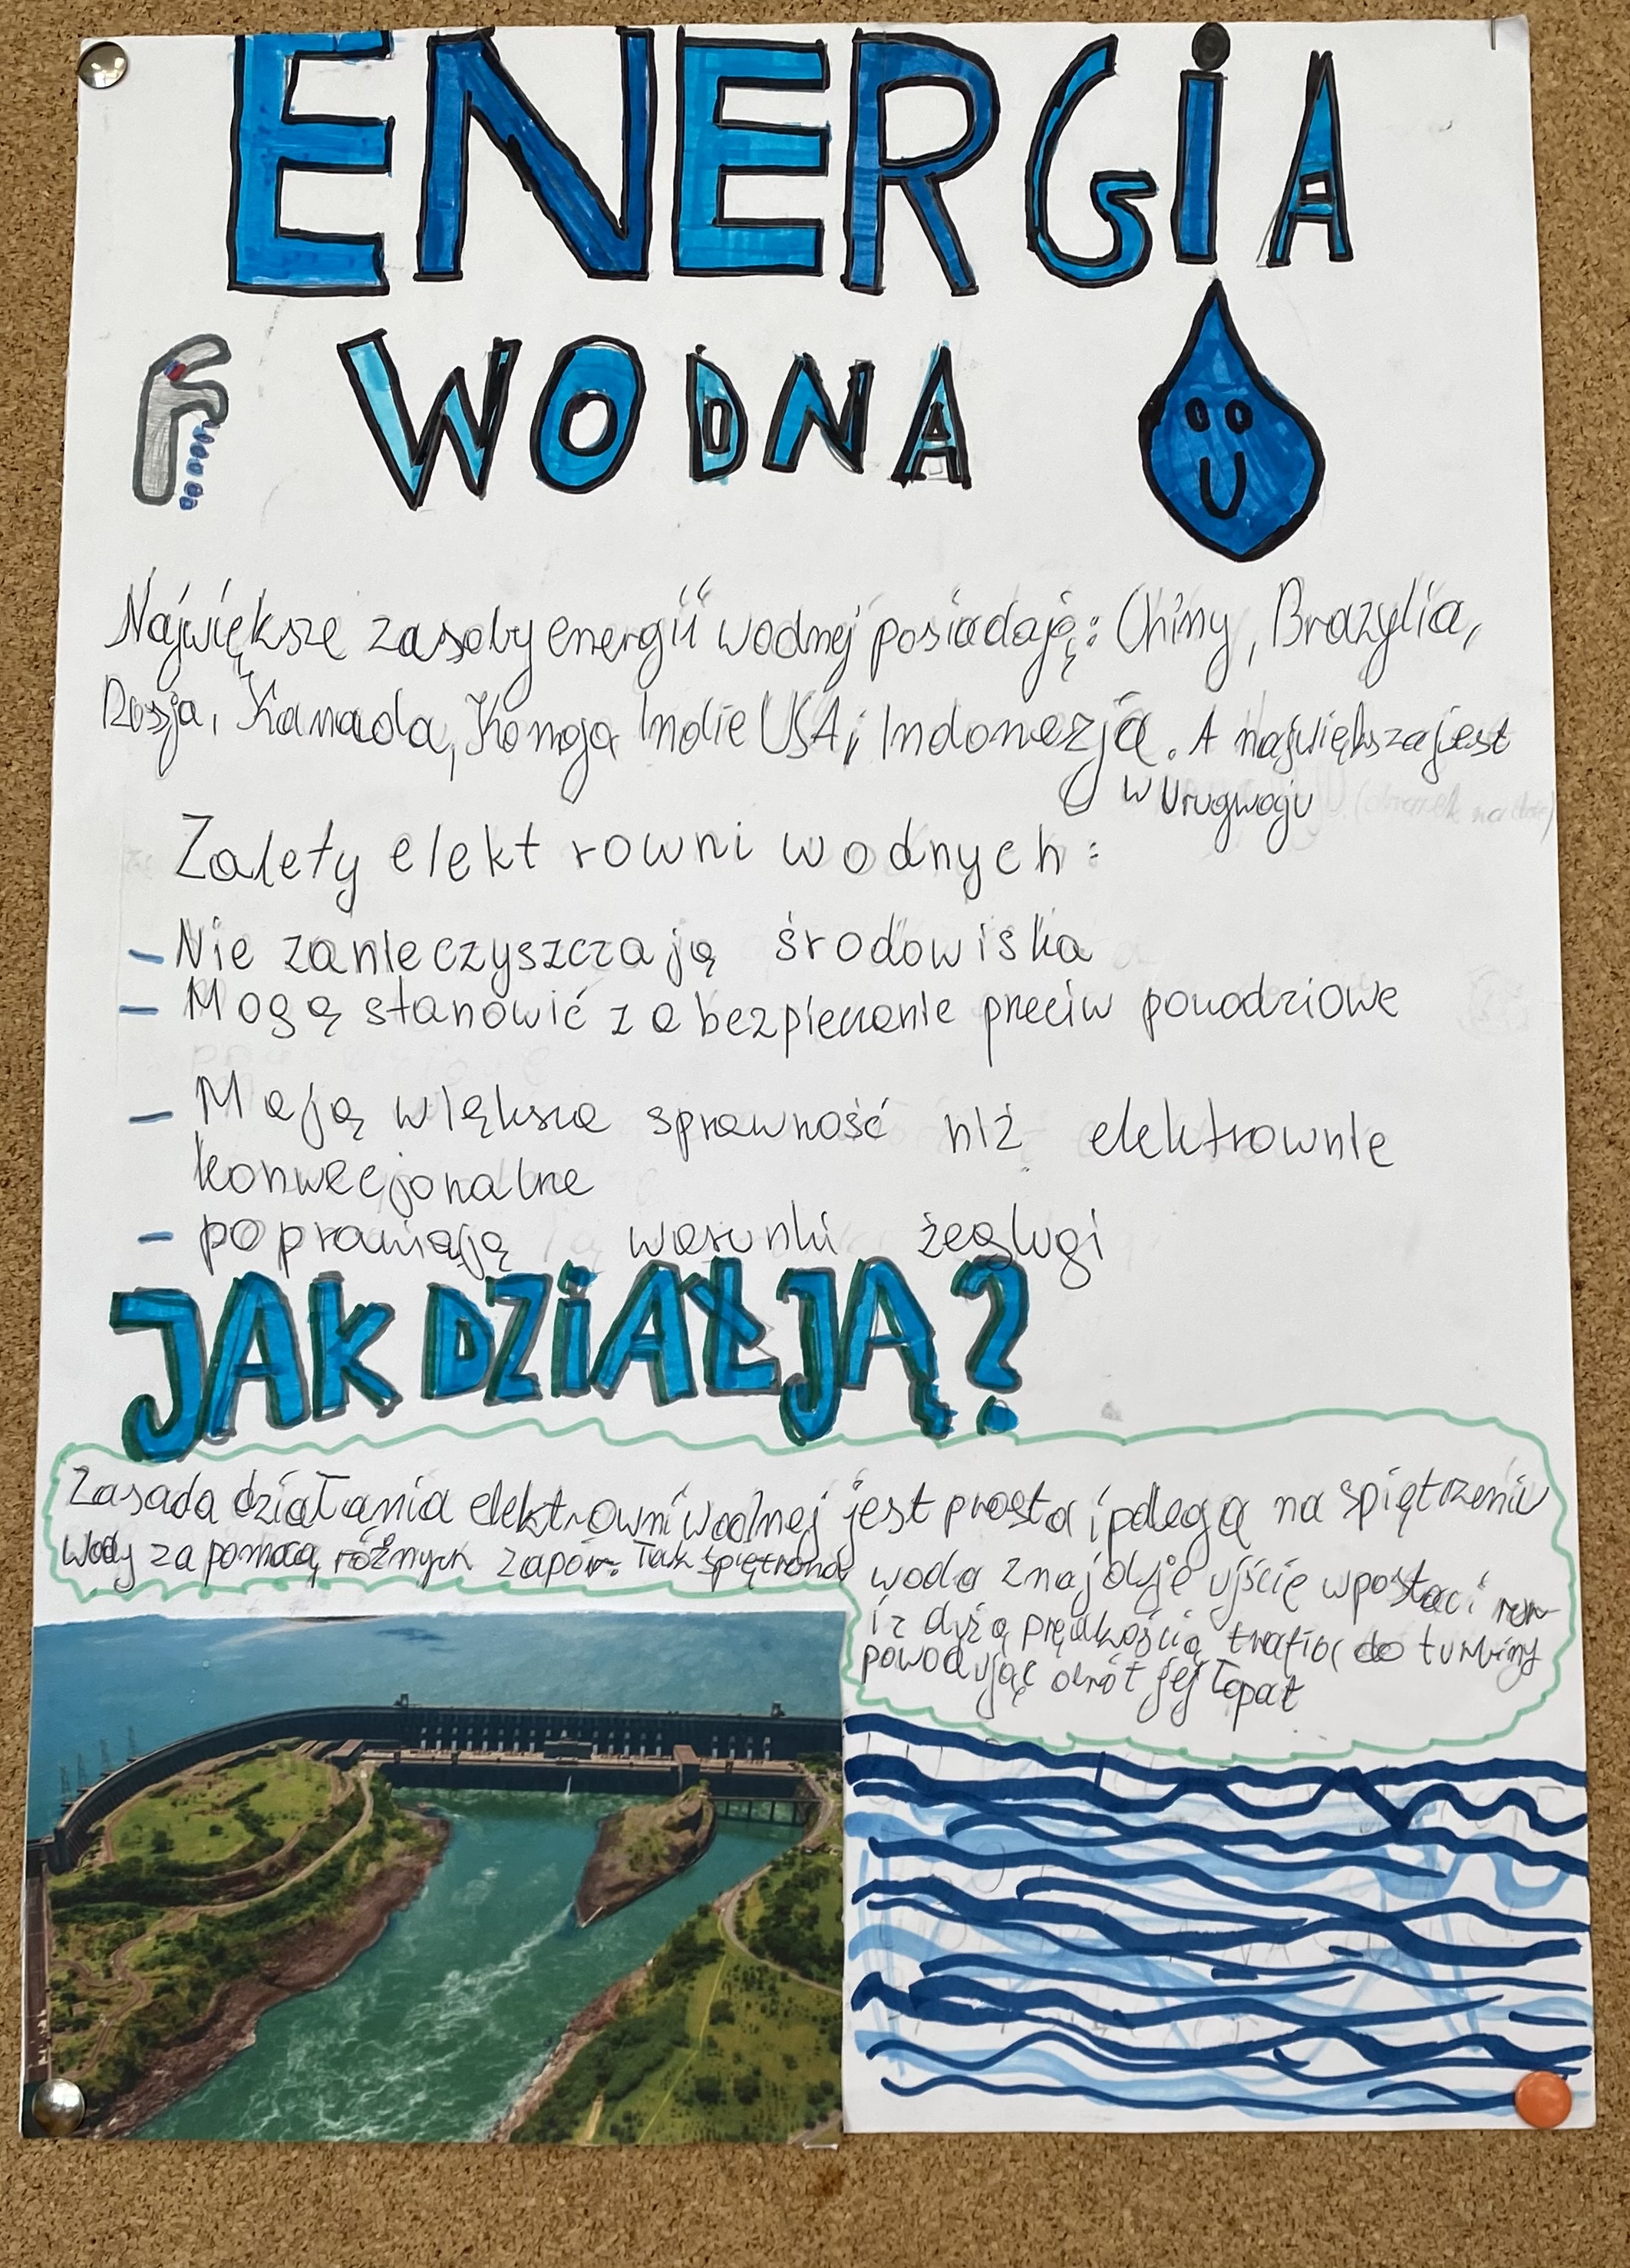 ENERGiA
WODNA
Największe zasoby energii wodnej posiadają: Chiny, Brazylia,
Rosja, Kanada, Kongo Indie USA i Indonezja. A największa jest
w Urugwaju
Zalety elektrowni wodnych:
- Nie zanieczyszczają środowiska
- Mogą stanowić zabezpieczenie przeciw powodziowe
- Mają większa sprawność niż elektrownie
konwecjonalne
- poprawiają warunki żeglugi
JAK DZiAŁJĄ?
Zasada działania elektrowni wodnej jest prosta i polega na spiętrzeniu
wody za pomocą różnych zapór. Tak spiętrzona
woda znajduje ujście w postaci
i z dużą prędkością trafia do turbiny
powodując obrót jej łopat